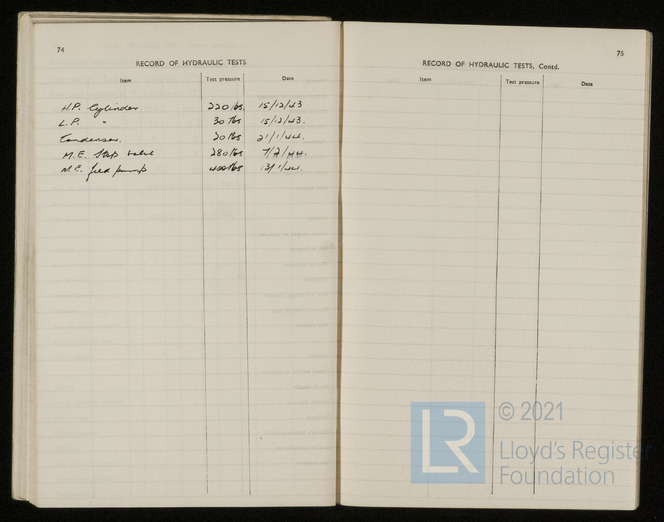 74
RECORD OF HYDRAULIC TESTS
Item Test pressure Date
H.P. Cylinder 220 lbs. 15/12/43
L.P. " 30 lbs 15/12/43.
Condenser. 20 lbs 21/1/44.
M.E. Stop valve 280 lbs 7/2/44.
M.E. feed pump 400 lbs 13/1/44.
75
RECORD OF HYDRAULIC TESTS, Contd.
Item Test pressure Date
LR
© 2021
Lloyd's Register
Foundation